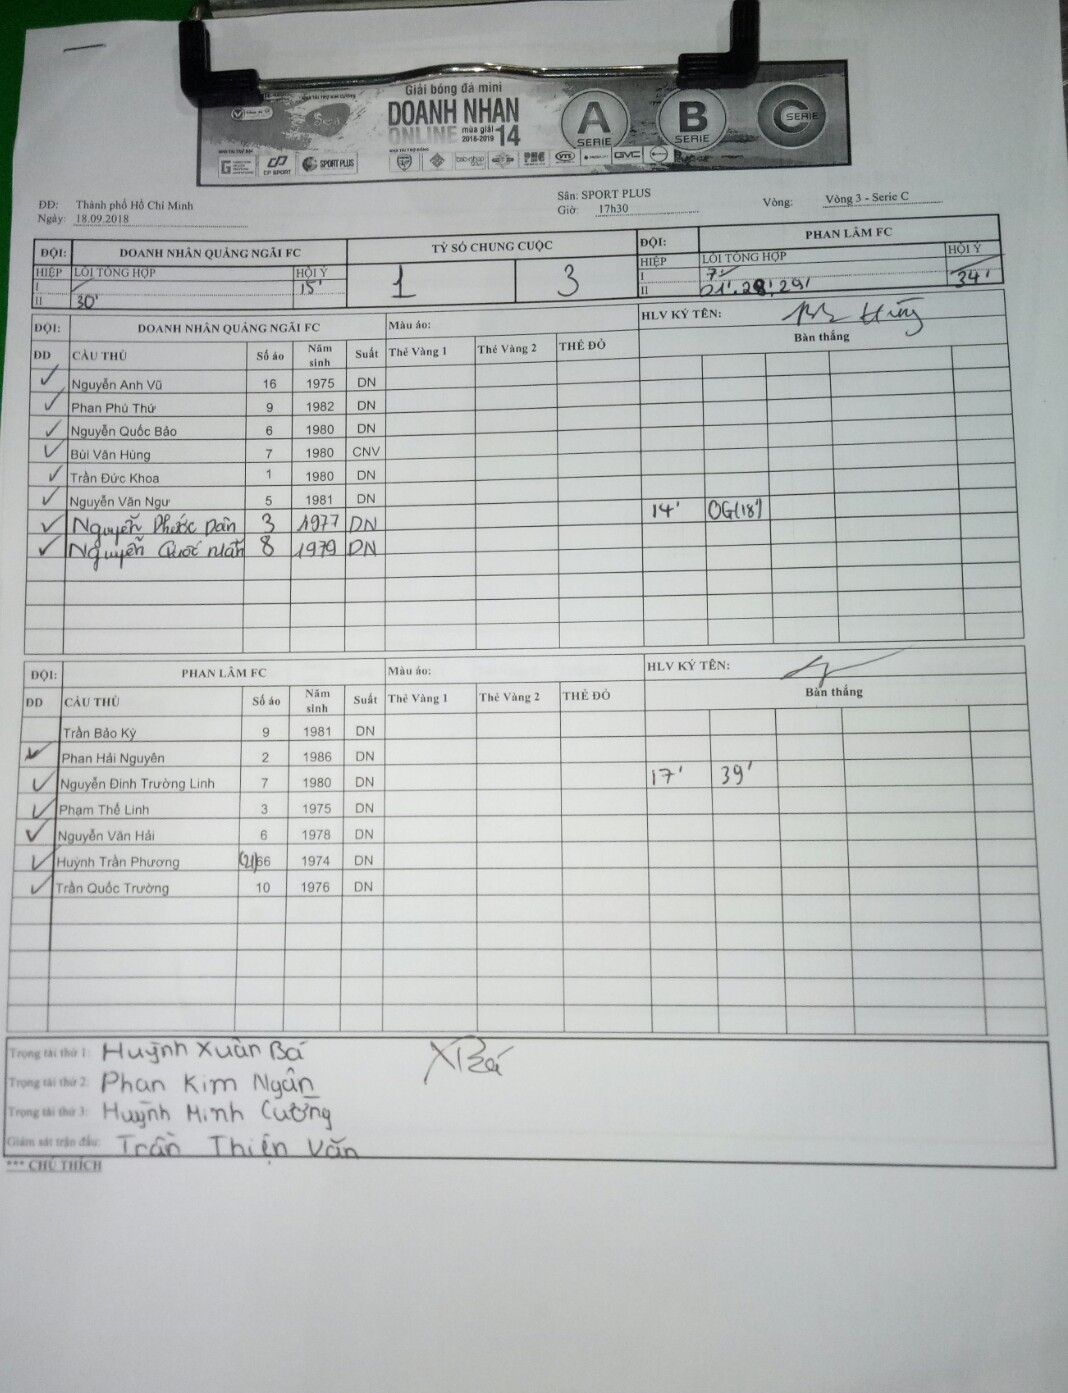 Giải bóng đá mini
DOANH NHAN
ONLINE mùa giải 2018-2019 14
A SERIE
B SERIE
C SERIE
SPORT PLUS
CP SPORT
VTX
GMC
ĐĐ: Thành phố Hồ Chí Minh Sân: SPORT PLUS Vòng: Vòng 3 - Serie C
Ngày: 18.09.2018 Giờ: 17h30
ĐỘI: DOANH NHÂN QUẢNG NGÃI FC TỶ SỐ CHUNG CUỘC ĐỘI: PHAN LÂM FC
HIỆP LỖI TỔNG HỢP HỘI Ý 1 3 HIỆP LỖI TỔNG HỢP HỘI Ý
I 15' I 7'
II 30' II 21', 28', 29' 34'
ĐỘI: DOANH NHÂN QUẢNG NGÃI FC Màu áo: HLV KÝ TÊN: Hùng
ĐD CẦU THỦ Số áo Năm sinh Suất Thẻ Vàng 1 Thẻ Vàng 2 THẺ ĐỎ Bàn thắng
Nguyễn Anh Vũ 16 1975 DN
Phan Phú Thứ 9 1982 DN
Nguyễn Quốc Bảo 6 1980 DN
Bùi Văn Hùng 7 1980 CNV
Trần Đức Khoa 1 1980 DN
Nguyễn Văn Ngư 5 1981 DN 14' OG(18')
Nguyễn Phước Dân 3 1977 DN
Nguyễn Quốc 8 1979 DN
ĐỘI: PHAN LÂM FC Màu áo: HLV KÝ TÊN:
ĐD CẦU THỦ Số áo Năm sinh Suất Thẻ Vàng 1 Thẻ Vàng 2 THẺ ĐỎ Bàn thắng
Trần Bảo Kỳ 9 1981 DN
Phan Hải Nguyên 2 1986 DN
Nguyễn Đinh Trường Linh 7 1980 DN 17' 39'
Phạm Thế Linh 3 1975 DN
Nguyễn Văn Hải 6 1978 DN
Huỳnh Trần Phương (21)66 1974 DN
Trần Quốc Trường 10 1976 DN
Trọng tài thứ 1: Huỳnh Xuân Bá XBá
Trọng tài thứ 2: Phan Kim Ngân
Trọng tài thứ 3: Huỳnh Minh Cường
Giám sát trận đấu: Trần Thiện Văn
*** CHÚ THÍCH